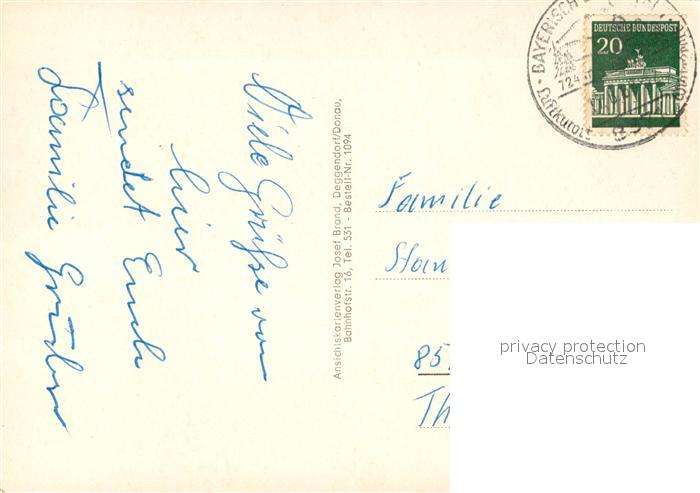 Viele Grüße von
hier
sendet Euch
Familie
Ansichtskartenverlag Josef Brand, Deggendorf/Donau,
Bahnhofstr. 16, Tel. 531 - Bestell-Nr. 1094
BAYERISCH
Luftkurort
DEUTSCHE BUNDESPOST
20
Familie
Stan
85
Th
privacy protection
Datenschutz